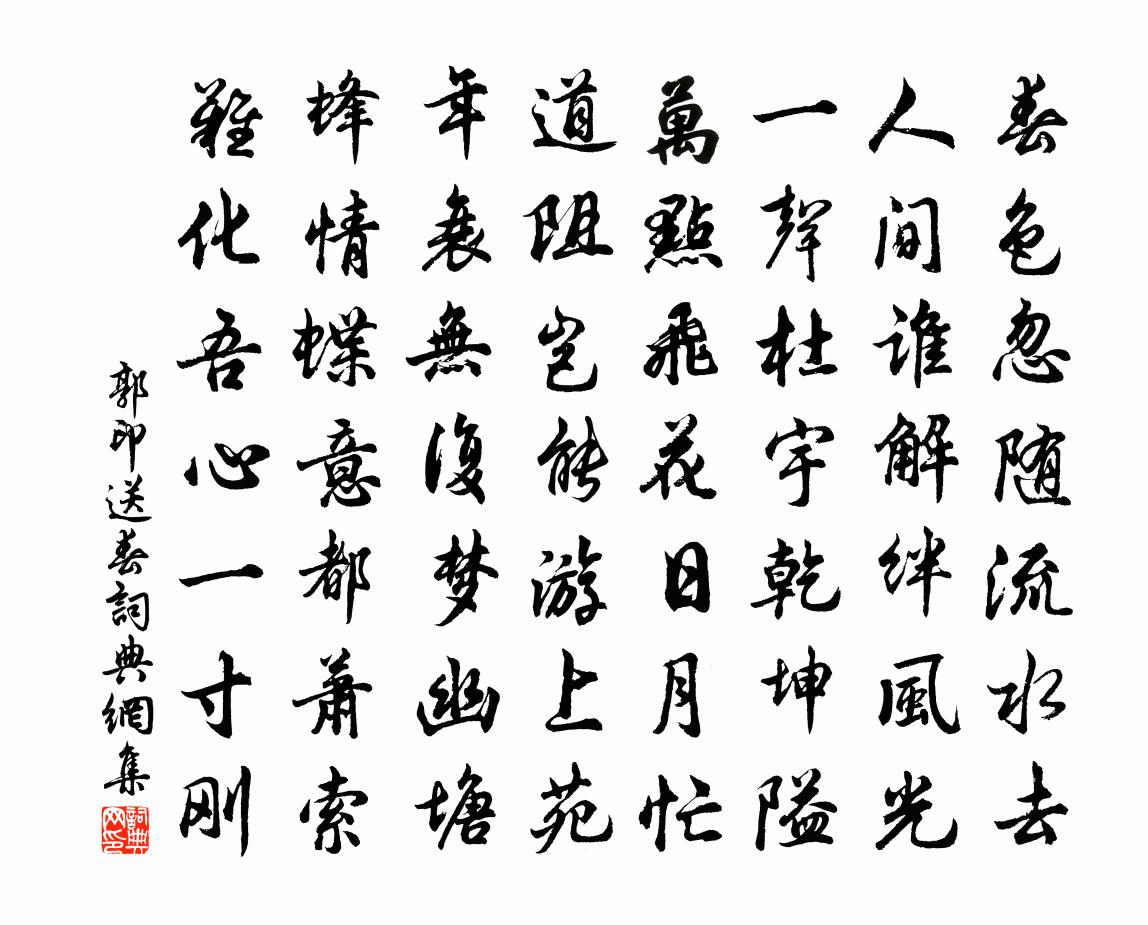 春色忽随流水去
人间谁解絆風光
一聲杜宇乾坤隘
萬點飛花日月忙
道阻豈能游上苑
年衰無復梦幽塘
蜂情蝶意都蕭索
難化吾心一寸刚
郭印送春詞典網集
詞典网印